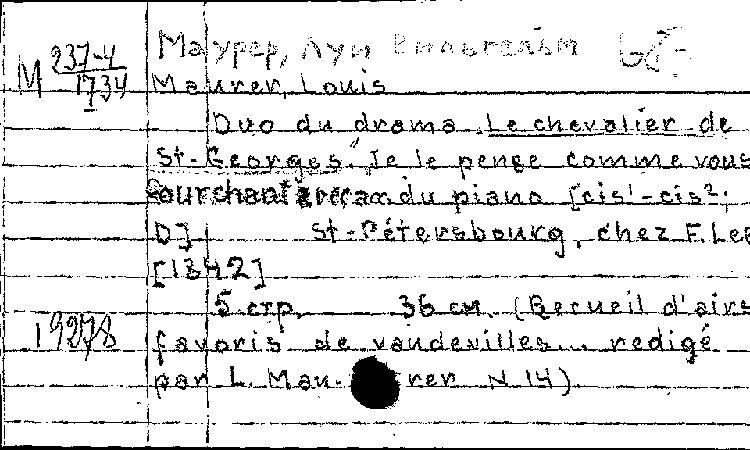 Маурер, Луи Вильгельм
М 237-4
Maurer, Louis
1734
Duo du drama „Le chevalier de
St-Georges." Je le pense comme vous
Pour chant avec acc. du piano [cis¹-cis²;
D] St-Pétersbourg, chez F. Lee
[1842]
5 стр. 36 см. (Recueil d'airs
19278
favoris de vaudevilles... redigé
par L. Mau-rer N 14).